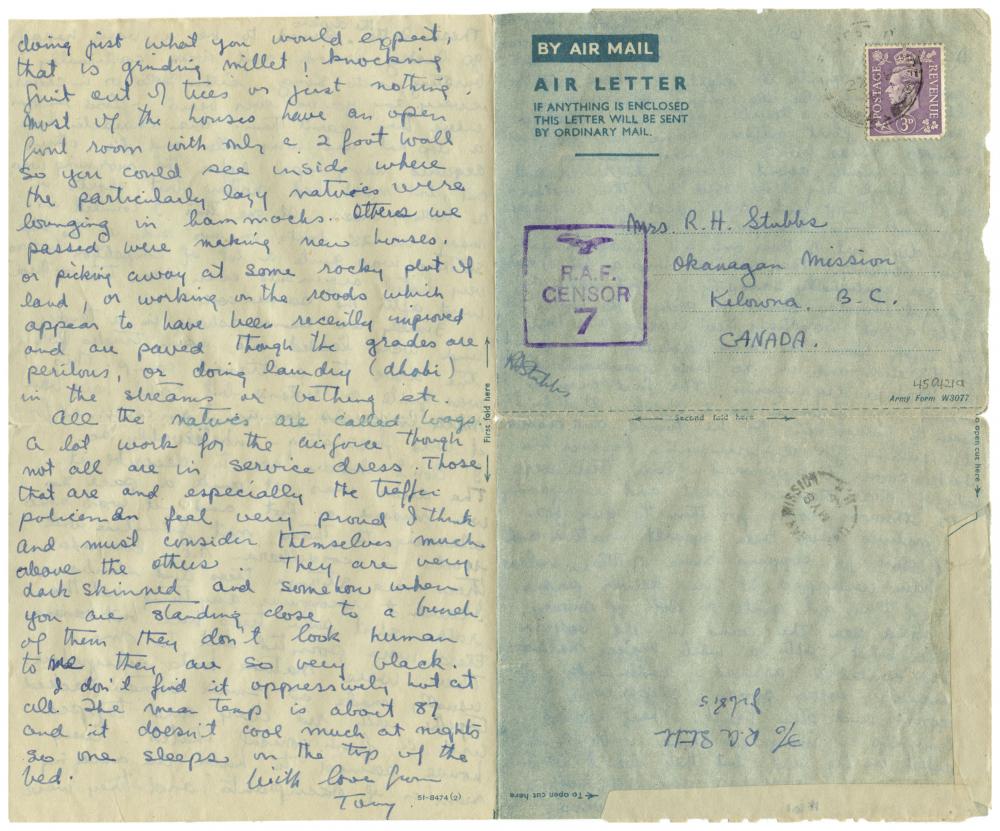 doing just what you would expect,
that is grinding millet, knocking
fruit out of trees or just nothing.
Most of the houses have an open
front room with only a 2 foot wall
so you could see inside where
the particularly lazy natives were
lounging in hammocks. Others we
passed were making new houses.
or picking away at some rocky plot of
land, or working on the roads which
appear to have been recently improved
and are paved though the grades are
perilous, or doing laundry (dhobi)
in the streams or bathing etc.
All the natives are called wogs.
A lot work for the airforce though
not all are in service dress. Those
that are and especially the traffic
policeman feel very proud I think
and must consider themselves much
above the others. They are very
dark skinned and somehow when
you are standing close to a bunch
of them they don't look human
to me they are so very black.
I don't find it oppressively hot at
all. The mean temp is about 87
and it doesn't cool much at nights
so one sleeps on the top of the
bed. With love from
Tony.
51-8474 (2)
First fold here
BY AIR MAIL
AIR LETTER
IF ANYTHING IS ENCLOSED
THIS LETTER WILL BE SENT
BY ORDINARY MAIL.
POSTAGE
REVENUE
3D
Mrs. R. H. Stubbs
Okanagan Mission
Kelowna, B.C.
CANADA.
R.A.F.
CENSOR
7
RAStubbs
450421a
Army Form W3077
Second fold here
To open cut here
MISSION
F/O R.A. Stubbs
To open cut here